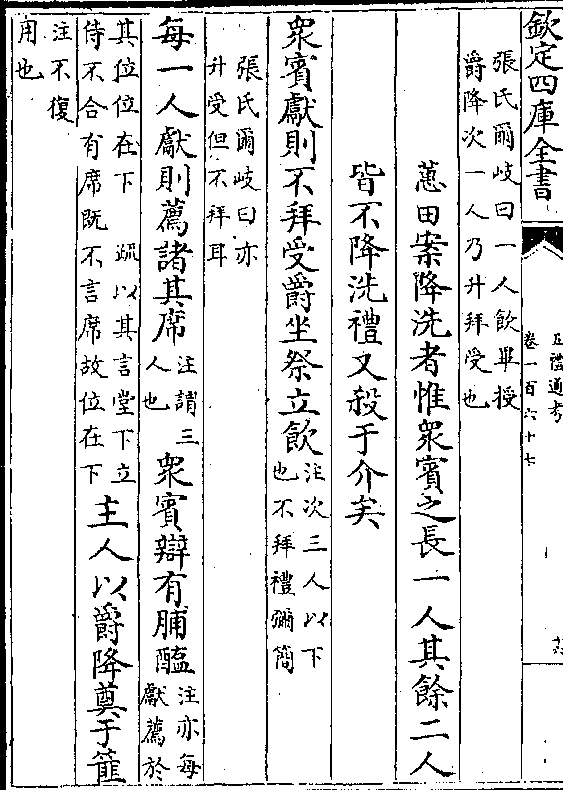 欽定四庫全書
五禮通考
卷一百六十七
張氏爾岐曰一人飲畢授
爵降次一人乃升拜受也
蕙田案降洗者惟衆賓之長一人其餘二人
皆不降洗禮又殺于介矣
衆賓獻則不拜受爵坐祭立飲
注次三人以下
也不拜禮彌簡
張氏爾岐曰亦
升受但不拜耳
每一人獻則薦諸其席
注謂三
人也
衆賓辯有脯醢
注亦每
獻薦於
其位位在下 疏以其言堂下立
侍不合有席既不言席故位在下
主人以爵降奠于篚
注不復
用也